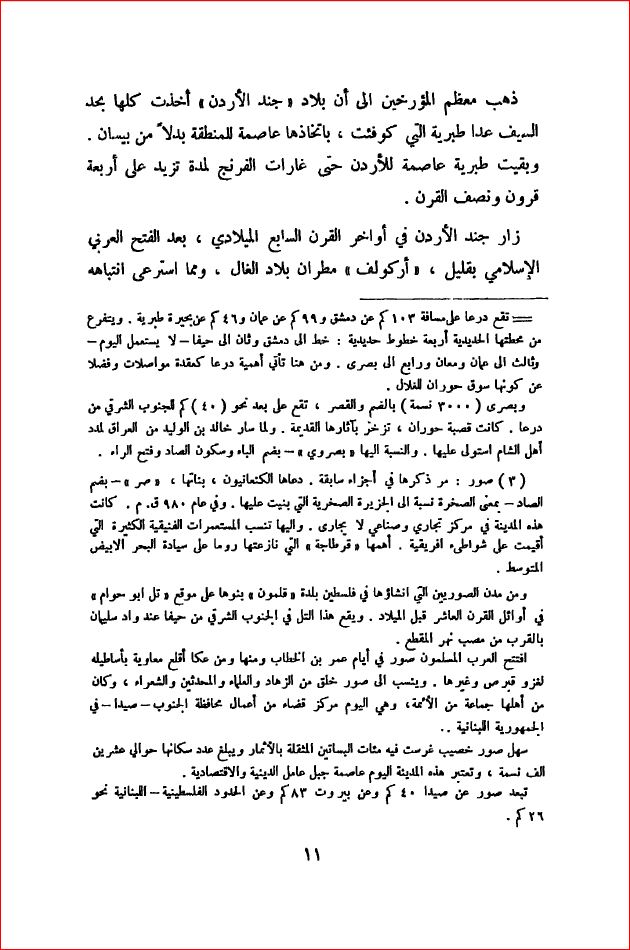 ذهب معظم المؤرخين الى أن بلاد «جند الأردن» أخذت كلها بحد
السيف عدا طبرية التي كوفئت ، باتخاذها عاصمة للمنطقة بدلاً من بيسان .
وبقيت طبرية عاصمة للأردن حتى غارات الفرنج لمدة تزيد على أربعة
قرون ونصف القرن .
زار جند الأردن في أواخر القرن السابع الميلادي ، بعد الفتح العربي
الإسلامي بقليل ، «أركولف» مطران بلاد الغال ، ومما استرعى انتباهه
= تقع درعا على مسافة ١٠٣ كم عن دمشق و٩٩ كم عن عمان و٤٦ كم عن بحيرة طبرية . ويتفرع
من محطتها الحديدية أربعة خطوط حديدية : خط الى دمشق وثان الى حيفا – لا يستعمل اليوم –
وثالث الى عمان ومعان ورابع الى بصرى . ومن هنا تأتي أهمية درعا كعقدة مواصلات وفضلا
عن كونها سوق حوران للغلال .
وبصرى ( ٣٠٠٠ نسمة ) بالضم والقصر ، تقع على بعد نحو ( ٤٠ ) كم للجنوب الشرقي من
درعا . كانت قصبة حوران ، تزخر بآثارها القديمة . ولما سار خالد بن الوليد من العراق لمدد
أهل الشام استولى عليها . والنسبة اليها «بصروي» – بضم الباء وسكون الصاد وفتح الراء .
( ٣ ) صور : مر ذكرها في أجزاء سابقة . دعاها الكنعانيون ، بناتها ، «صر» – بضم
الصاد – بمعنى الصخرة نسبة الى الجزيرة الصخرية التي بنيت عليها . وفي عام ٩٨٠ ق . م . كانت
هذه المدينة في مركز تجاري وصناعي لا يجارى . واليها تنسب المستعمرات الفنيقية الكثيرة التي
أقيمت على شواطىء افريقية . أهمها «قرطاجة» التي نازعتها روما على سيادة البحر الابيض
المتوسط .
ومن مدن الصوريين التي انشاؤها في فلسطين بلدة «قلمون» بنوها على موقع «تل ابو حوام»
في أوائل القرن العاشر قبل الميلاد . ويقع هذا التل في الجنوب الشرقي من حيفا عند واد سليمان
بالقرب من مصب نهر المقطع .
افتتح العرب المسلمون صور في أيام عمر بن الخطاب ومنها ومن عكا أقلع معاوية بأساطيله
لغزو قبرص وغيرها . وينسب الى صور خلق من الزهاد والعلماء والمحدثين والشعراء ، وكان
من أهلها جماعة من الأئمة، وهي اليوم مركز قضاء من أعمال محافظة الجنوب – صيدا – في
الجمهورية اللبنانية ..
سهل صور خصيب غرست فيه مئات البساتين المثقلة بالأثمار ويبلغ عدد سكانها حوالي عشرين
الف نسمة ، وتعتبر هذه المدينة اليوم عاصمة جبل عامل الدينية والاقتصادية .
تبعد صور عن صيدا ٤٠ كم وعن بيروت ٨٣ كم وعن الحدود الفلسطينية – اللبنانية نحو
٢٦ كم .
١١